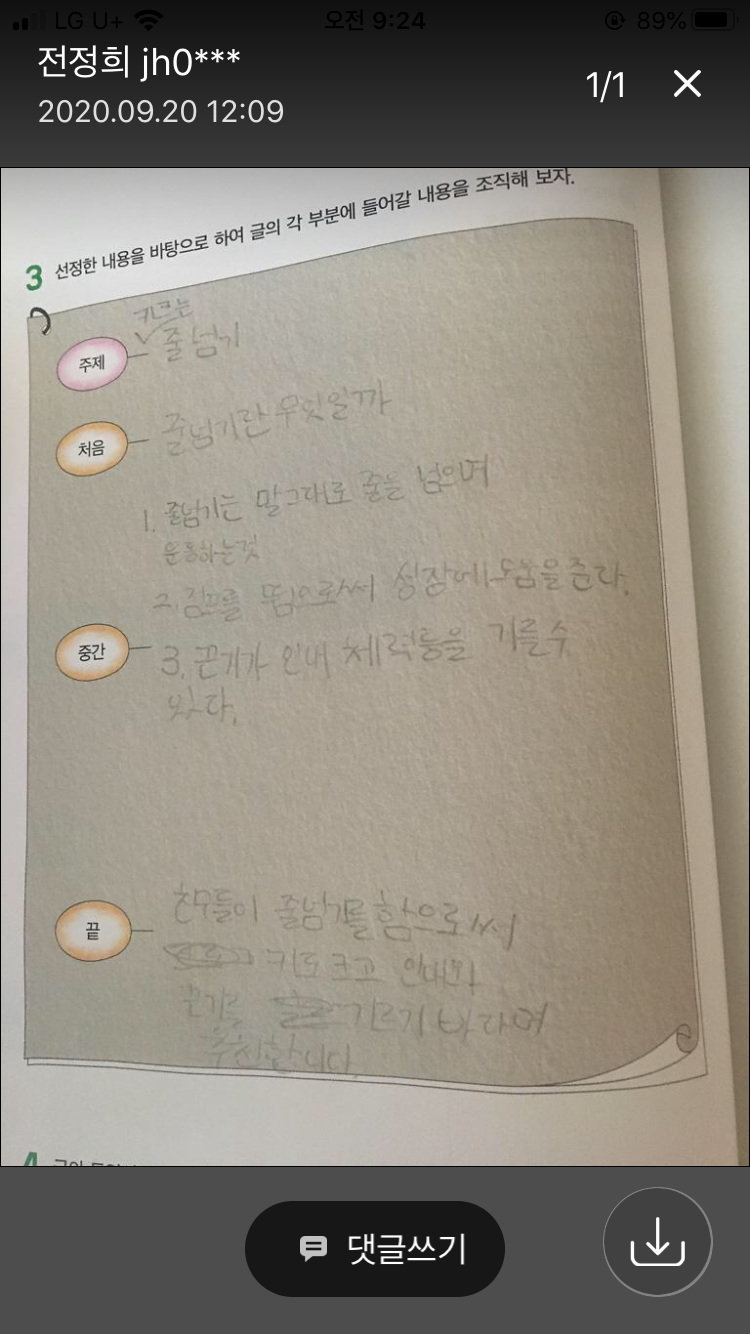 LG U+ 오전 9:24 89%
전정희 jh0***
1/1
2020.09.20 12:09
3 선정한 내용을 바탕으로 하여 글의 각 부분에 들어갈 내용을 조직해 보자.
키크는
주제 줄넘기
처음 줄넘기란 무엇일까
1. 줄넘기는 말그대로 줄을 넘으며
운동하는것
2. 점프를 뜀으로써 성장에 도움을 준다.
중간 3. 끈기가 인내 체력등을 기를수
있다.
끝 친구들이 줄넘기를 함으로써
키도 크고 인내와
끈기를 기르기 바라며
추천합니다.
4
댓글쓰기